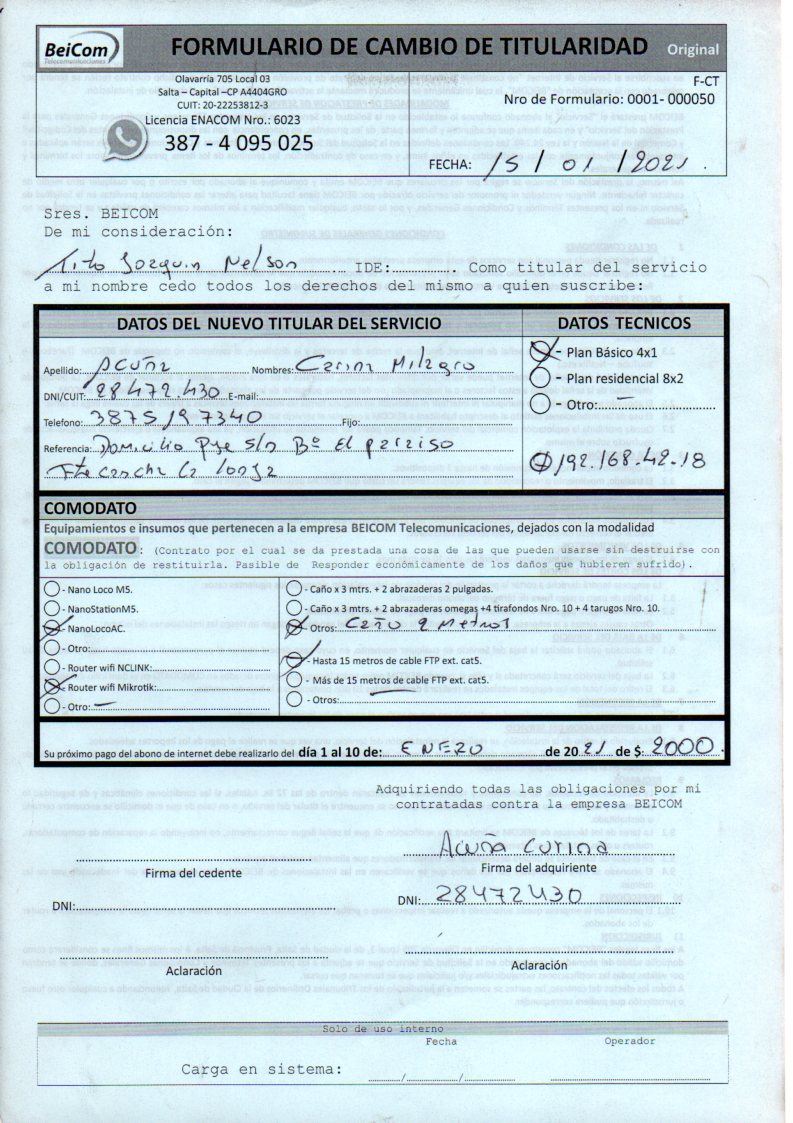 BeiCom
Telecomunicaciones
FORMULARIO DE CAMBIO DE TITULARIDAD Original
Olavarría 705 Local 03
Salta – Capital –CP A4404GRO
CUIT: 20-22253812-3
Licencia ENACOM Nro.: 6023
387 - 4 095 025
F-CT
Nro de Formulario: 0001- 000050
FECHA: 15 / 01 / 2021
Sres. BEICOM
De mi consideración:
Tito Joaquin Nelson IDE: Como titular del servicio
a mi nombre cedo todos los derechos del mismo a quien suscribe:
DATOS DEL NUEVO TITULAR DEL SERVICIO
Apellido: Acuña Nombres: Carina Milagro
DNI/CUIT: 28472.430 E-mail:
Telefono: 3875197340 Fijo:
Referencia: Domicilio Pje s/n Bº El paraiso
Fte cancha la lonja
DATOS TECNICOS
- Plan Básico 4x1
- Plan residencial 8x2
- Otro: —
192.168.42.18
COMODATO
Equipamientos e insumos que pertenecen a la empresa BEICOM Telecomunicaciones, dejados con la modalidad
COMODATO: (Contrato por el cual se da prestada una cosa de las que pueden usarse sin destruirse con
la obligación de restituirla. Pasible de Responder económicamente de los daños que hubieren sufrido).
- Nano Loco M5.
- NanoStationM5.
- NanoLocoAC.
- Otro:
- Router wifi NCLINK:
- Router wifi Mikrotik:
- Otro: —
- Caño x 3 mtrs. + 2 abrazaderas 2 pulgadas.
- Caño x 3 mtrs. + 2 abrazaderas omegas +4 tirafondos Nro. 10 + 4 tarugos Nro. 10.
- Otros: Caño 2 Metros
- Hasta 15 metros de cable FTP ext. cat5.
- Más de 15 metros de cable FTP ext. cat5.
- Otros:
Su próximo pago del abono de internet debe realizarlo del día 1 al 10 de: ENERO de 20 21 de $ 2000
Adquiriendo todas las obligaciones por mi
contratadas contra la empresa BEICOM
Firma del cedente
DNI:
Aclaración
Acuña Carina
Firma del adquiriente
DNI: 28472430
Aclaración
Solo de uso interno
Fecha Operador
Carga en sistema: / /